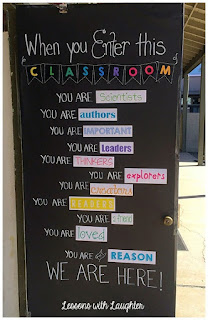 When you Enter this
CLASSROOM
YOU ARE Scientists
YOU ARE authors
YOU ARE IMPORTANT
YOU ARE Leaders
YOU ARE THINKERS
YOU ARE explorers
YOU ARE
YOU ARE READERS
YOU ARE a friend
YOU ARE loved
YOU ARE the REASON
WE ARE HERE!
Lessons with Laughter